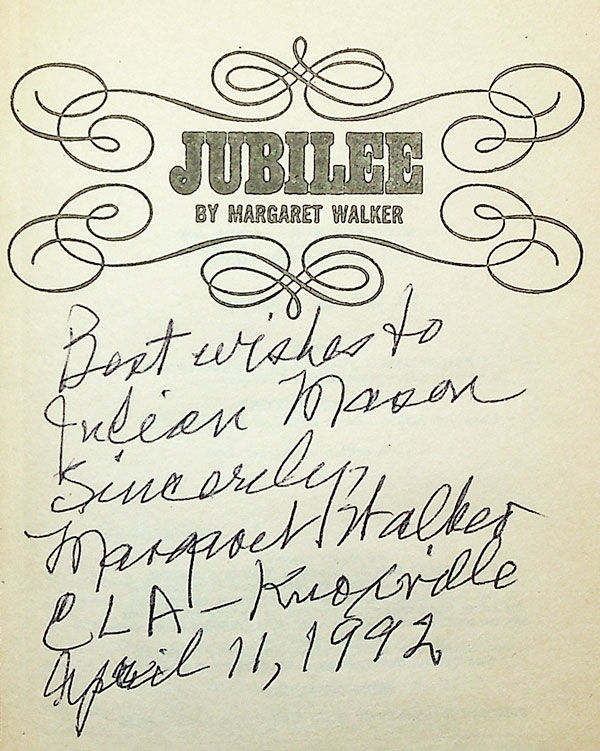 JUBILEE
BY MARGARET WALKER
Best wishes to
Julian Mason
Sincerely,
Margaret Walker
CLA - Knoxville
April 11, 1992